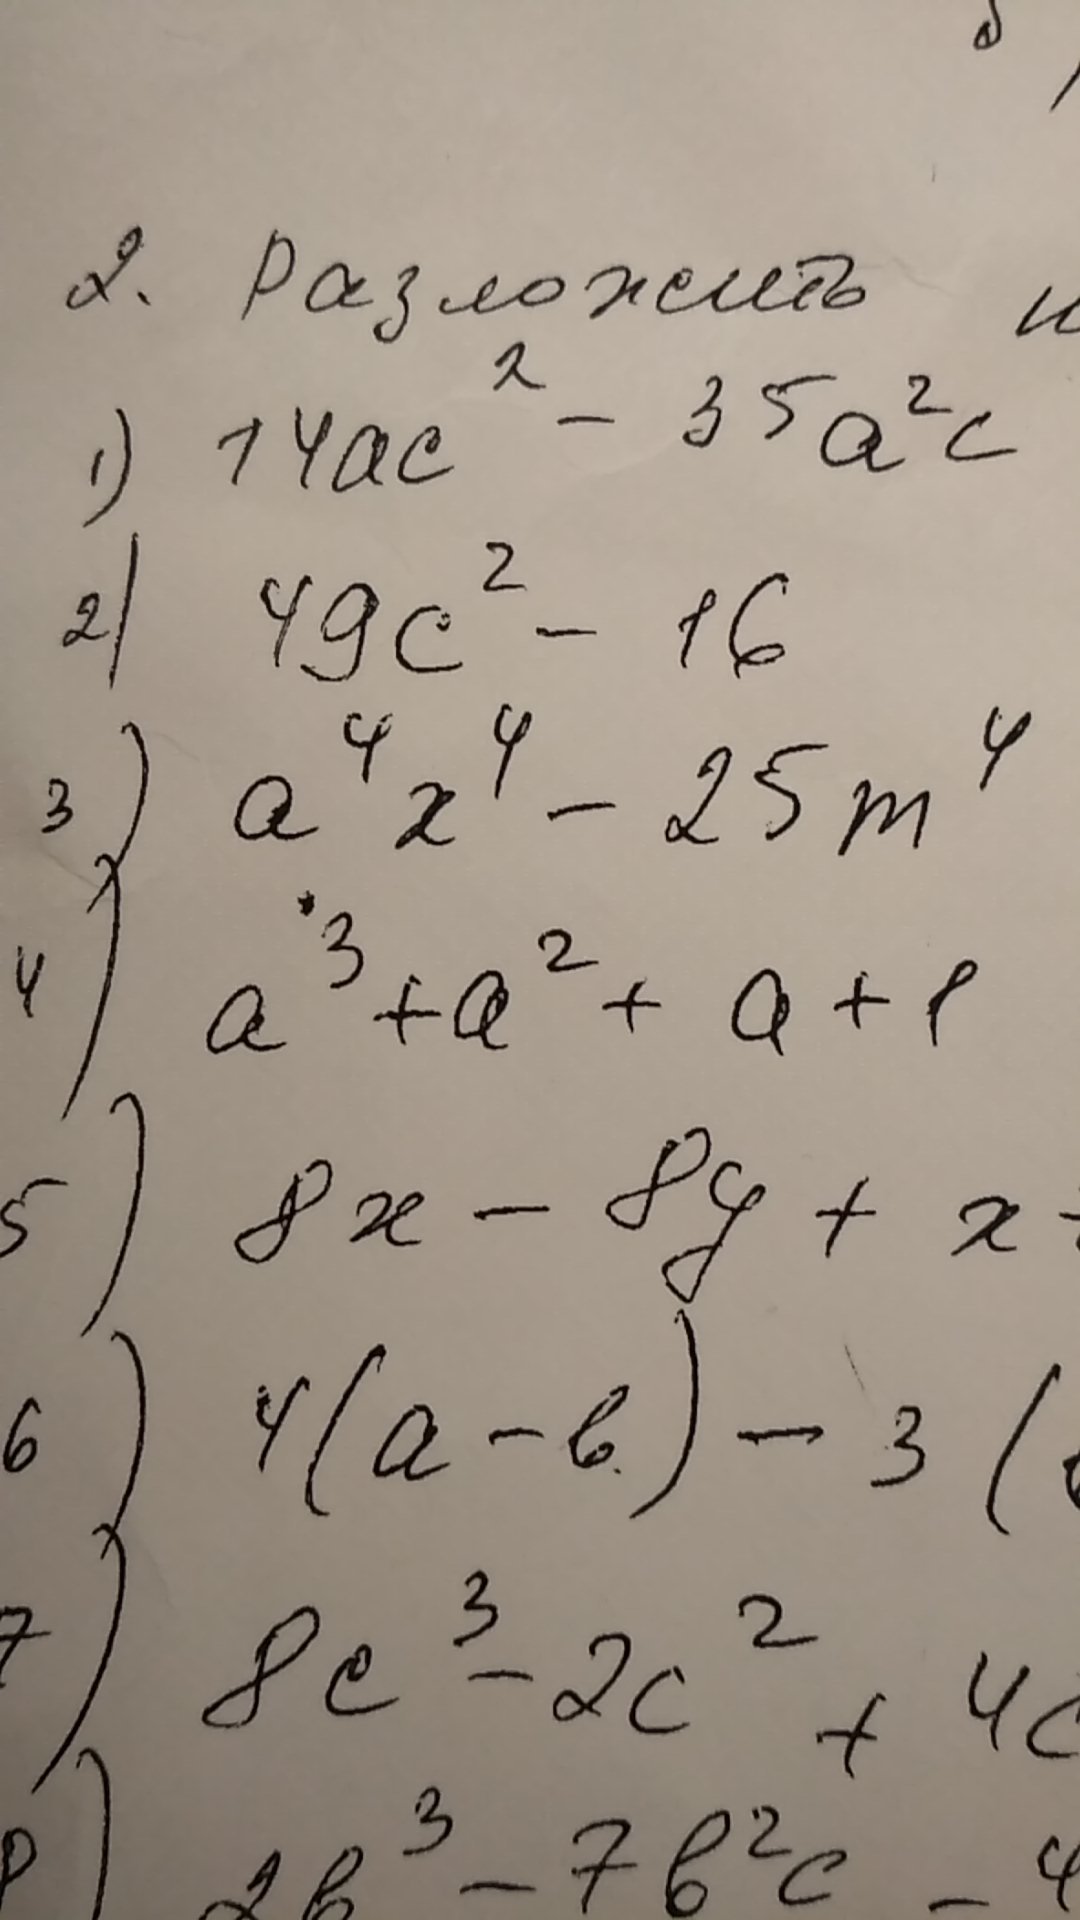 2. Разложить
1) 14ac² - 35a²c
2) 49c² - 16
3) a⁴x⁴ - 25m⁴
4) a³ + a² + a + 1
5) 8x - 8y + x
6) 4(a - b) - 3(
7) 8c³ - 2c² + 4c
8) 2b³ - 7b²c - 4